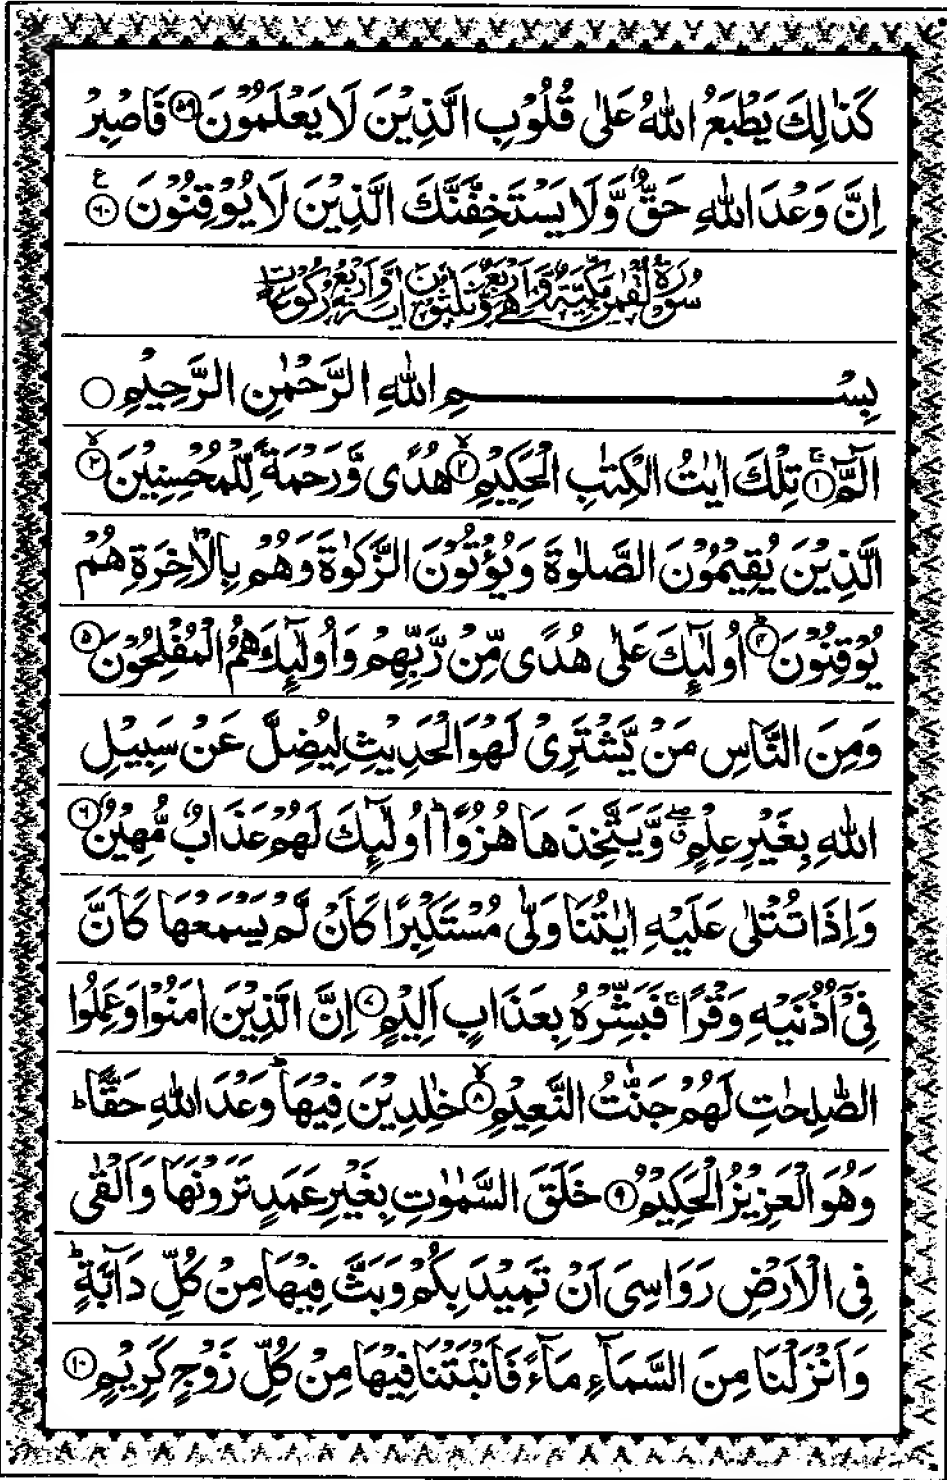 كَذٰلِكَ يَطْبَعُ اللّٰهُ عَلٰى قُلُوْبِ الَّذِيْنَ لَا يَعْلَمُوْنَ ﴿۵۹﴾ فَاصْبِرْ
اِنَّ وَعْدَ اللّٰهِ حَقٌّ وَّلَا يَسْتَخِفَّنَّكَ الَّذِيْنَ لَا يُوْقِنُوْنَ ﴿۶۰﴾ ع
سُوْرَةُ لُقْمٰنَ مَكِّيَّةٌ وَّهِيَ اَرْبَعٌ وَّثَلٰثُوْنَ اٰيَةً وَّاَرْبَعُ رُكُوْعَاتٍ
بِسْمِ اللّٰهِ الرَّحْمٰنِ الرَّحِيْمِ
الٓمّٓ ۚ﴿۱﴾ تِلْكَ اٰيٰتُ الْكِتٰبِ الْحَكِيْمِ ۙ﴿۲﴾ هُدًى وَّرَحْمَةً لِّلْمُحْسِنِيْنَ ۙ﴿۳﴾
الَّذِيْنَ يُقِيْمُوْنَ الصَّلٰوةَ وَيُؤْتُوْنَ الزَّكٰوةَ وَهُمْ بِالْاٰخِرَةِ هُمْ
يُوْقِنُوْنَ ؕ﴿۴﴾ اُولٰٓئِكَ عَلٰى هُدًى مِّنْ رَّبِّهِمْ وَاُولٰٓئِكَ هُمُ الْمُفْلِحُوْنَ ﴿۵﴾
وَمِنَ النَّاسِ مَنْ يَّشْتَرِيْ لَهْوَ الْحَدِيْثِ لِيُضِلَّ عَنْ سَبِيْلِ
اللّٰهِ بِغَيْرِ عِلْمٍ ۖق وَّيَتَّخِذَهَا هُزُوًا ؕ اُولٰٓئِكَ لَهُمْ عَذَابٌ مُّهِيْنٌ ﴿۶﴾
وَاِذَا تُتْلٰى عَلَيْهِ اٰيٰتُنَا وَلّٰى مُسْتَكْبِرًا كَاَنْ لَّمْ يَسْمَعْهَا كَاَنَّ
فِيْٓ اُذُنَيْهِ وَقْرًا ۚ فَبَشِّرْهُ بِعَذَابٍ اَلِيْمٍ ﴿۷﴾ اِنَّ الَّذِيْنَ اٰمَنُوْا وَعَمِلُوا
الصّٰلِحٰتِ لَهُمْ جَنّٰتُ النَّعِيْمِ ۙ﴿۸﴾ خٰلِدِيْنَ فِيْهَا ؕ وَعْدَ اللّٰهِ حَقًّا ؕ
وَهُوَ الْعَزِيْزُ الْحَكِيْمُ ﴿۹﴾ خَلَقَ السَّمٰوٰتِ بِغَيْرِ عَمَدٍ تَرَوْنَهَا وَاَلْقٰى
فِى الْاَرْضِ رَوَاسِيَ اَنْ تَمِيْدَ بِكُمْ وَبَثَّ فِيْهَا مِنْ كُلِّ دَآبَّةٍ ؕ
وَاَنْزَلْنَا مِنَ السَّمَآءِ مَآءً فَاَنْۢبَتْنَا فِيْهَا مِنْ كُلِّ زَوْجٍ كَرِيْمٍ ﴿۱۰﴾